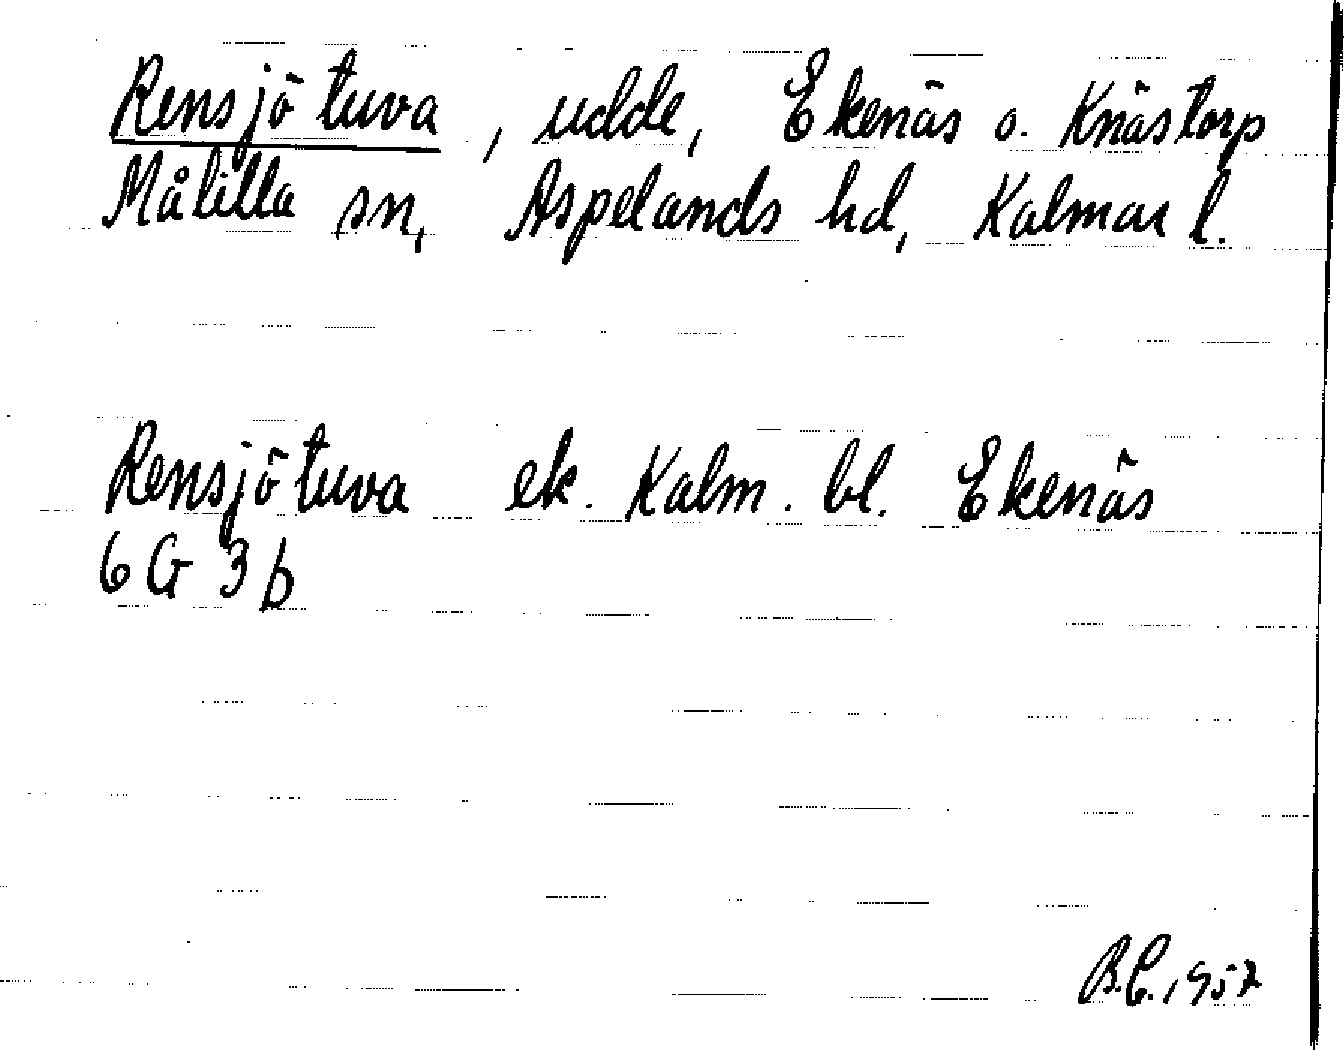 Rensjötuva, udde, Ekenäs o. Knästorp
Målilla sn, Aspelands hd, Kalmar l.
Rensjötuva ek. Kalm. bl. Ekenäs
6 G 3 b
B.E. 1957